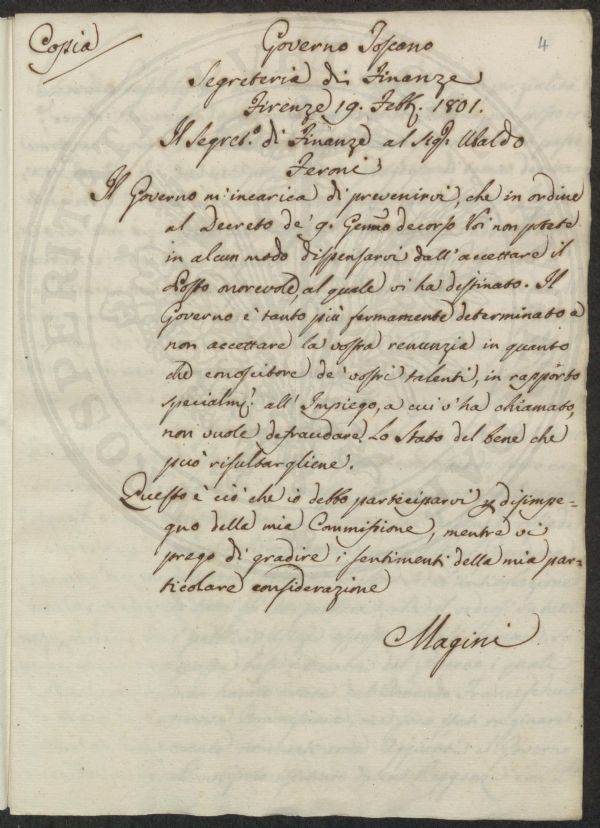 Copia
4
Governo Toscano
Segreteria di Finanze
Firenze 19. Febb. 1801.
Il Segret.º di Finanze al Sig. Ubaldo
Feroni
Il Governo m'incarica di prevenirvi, che in ordine
al Decreto de' 9. Genno decorso Voi non potete
in alcun modo dispensarvi dall'accettare il
Posto onorevole, al quale vi ha destinato. Il
Governo è tanto più fermamente determinato a
non accettare la vostra renunzia in quanto
che conoscitore de' vostri talenti, in rapporto
specialmte all'Impiego, a cui v'ha chiamato,
non vuole defraudare Lo Stato del bene che
può risultargliene.
Questo è ciò che io debbo participarvi p disimpe=
gno della mia Commissione, mentre vi
prego di gradire i sentimenti della mia par=
ticolare considerazione
Magini